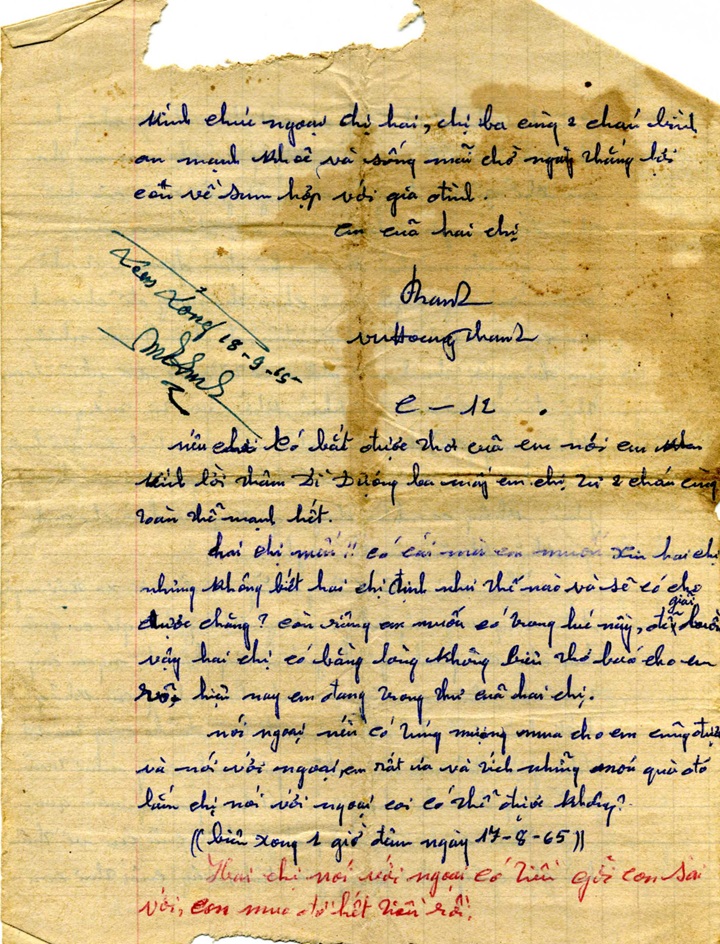 kính chúc ngoại chị hai, chị ba cùng 2 cháu bình
an mạnh khoẻ và sống mãi chờ ngày thắng lợi
em về sum hợp với gia đình.
em cuã hai chị
Thanh
Vũ Hoàng Thanh
C - 12
Xem xong 18-9-65
nếu có bắt được thơ cuã em nói em
kính lời thăm Dì Dượng ba mấy em chị Tư 2 cháu cùng
toàn thể mạnh hết.
hai chị mến !! có cái mà em muốn xin hai chị
nhưng không biết hai chị định như thế nào và sẽ có cho
được chăng? còn riêng em muốn có trong lúc này, để giải buồn
vậy hai chị có bằng lòng không biên thơ cho em
hiện nay em đang trong thư cuã hai chị.
nói ngoại nếu có mượng mua cho em cũng được
và nói với ngoại, em rất ưa và thích những món quà đó
lắm chị nói với ngoại coi có thể được không?
((biên xong 1 giờ đêm ngày 17-8-65))
Hai chị nói với ngoại có tiền gởi con sài
với, con mua đồ hết tiền rồi.